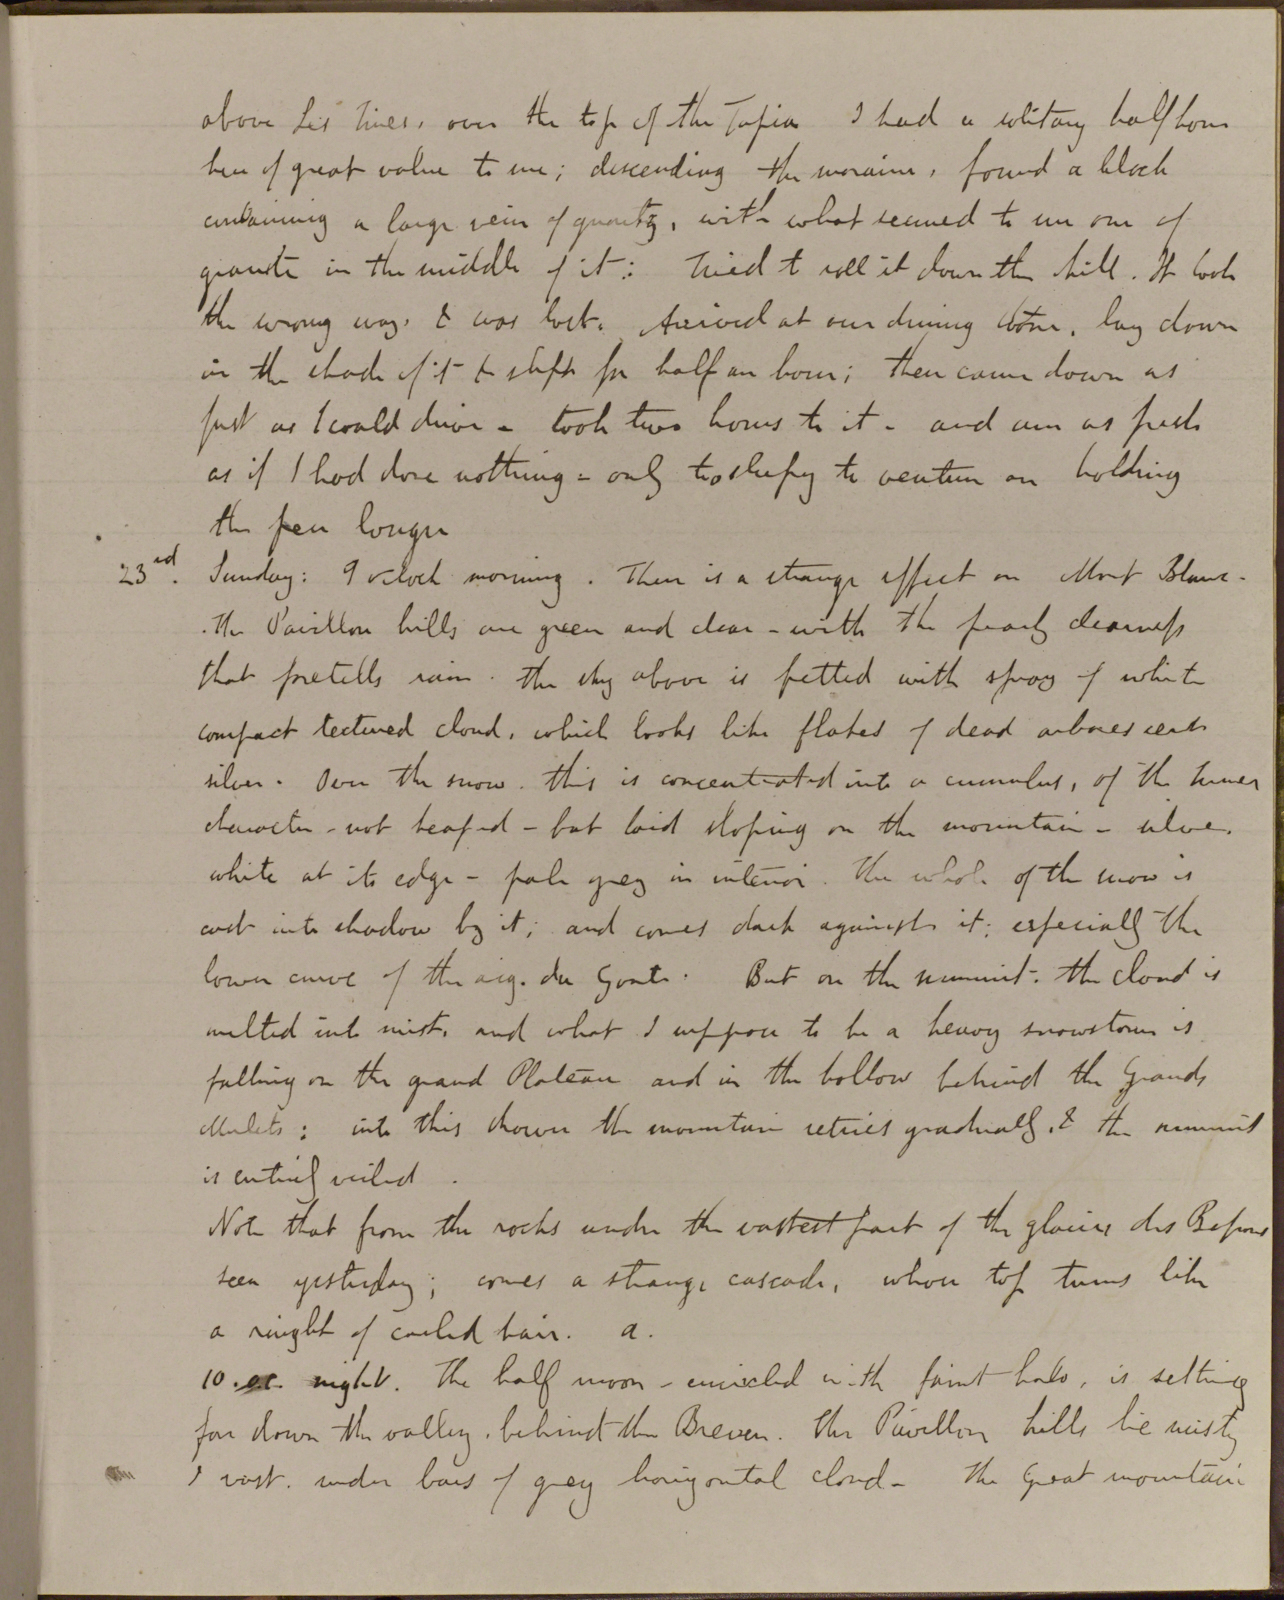 above Les Tines, over the top of the Tapia I had a solitary half hour
here of great value to me; descending the moraine, found a block
containing a large vein of quartz, with what seemed to me one of
granite in the middle of it: Tried to roll it down the hill. It took
the wrong way, & was lost. Arrived at our dining stone, lay down
in the shade of it & slept for half an hour; then came down as
fast as I could drive - took two hours to it - and am as fresh
as if I had done nothing - only too sleepy to venture on holding
the pen longer
23rd. Sunday: 9 oclock morning. There is a strange effect on Mont Blanc.
The Pavillon hills are green and clear - with the pearly clearness
that foretells rain. The sky above is fretted with spray of white
compact textured cloud, which looks like flakes of dead arborescent
silver. Over the snow, this is concentrated into a cumulus, of the Turner
character - not heaped - but laid sloping on the mountain - silver
white at its edge - pale grey in interior. The whole of the snow is
cast into shadow by it; and comes dark against it; especially the
lower curve of the aig. du Goute. But on the summit, the cloud is
melted into mist, and what I suppose to be a heavy snowstorm is
falling on the grand Plateau and in the hollow behind the Grands
Mulets: into this shower the mountain retires gradually, & the summit
is entirely veiled.
Note that from the rocks under the vastest part of the glacier des Bossons
seen yesterday; comes a strange cascade, whose top turns like
a ringlet of curled hair. a.
10. oc. night. The half moon - encircled with faint halo, is setting
far down the valley, behind the Breven. The Pavillon hills lie misty
& vast. under bars of grey horizontal cloud - The Great mountain